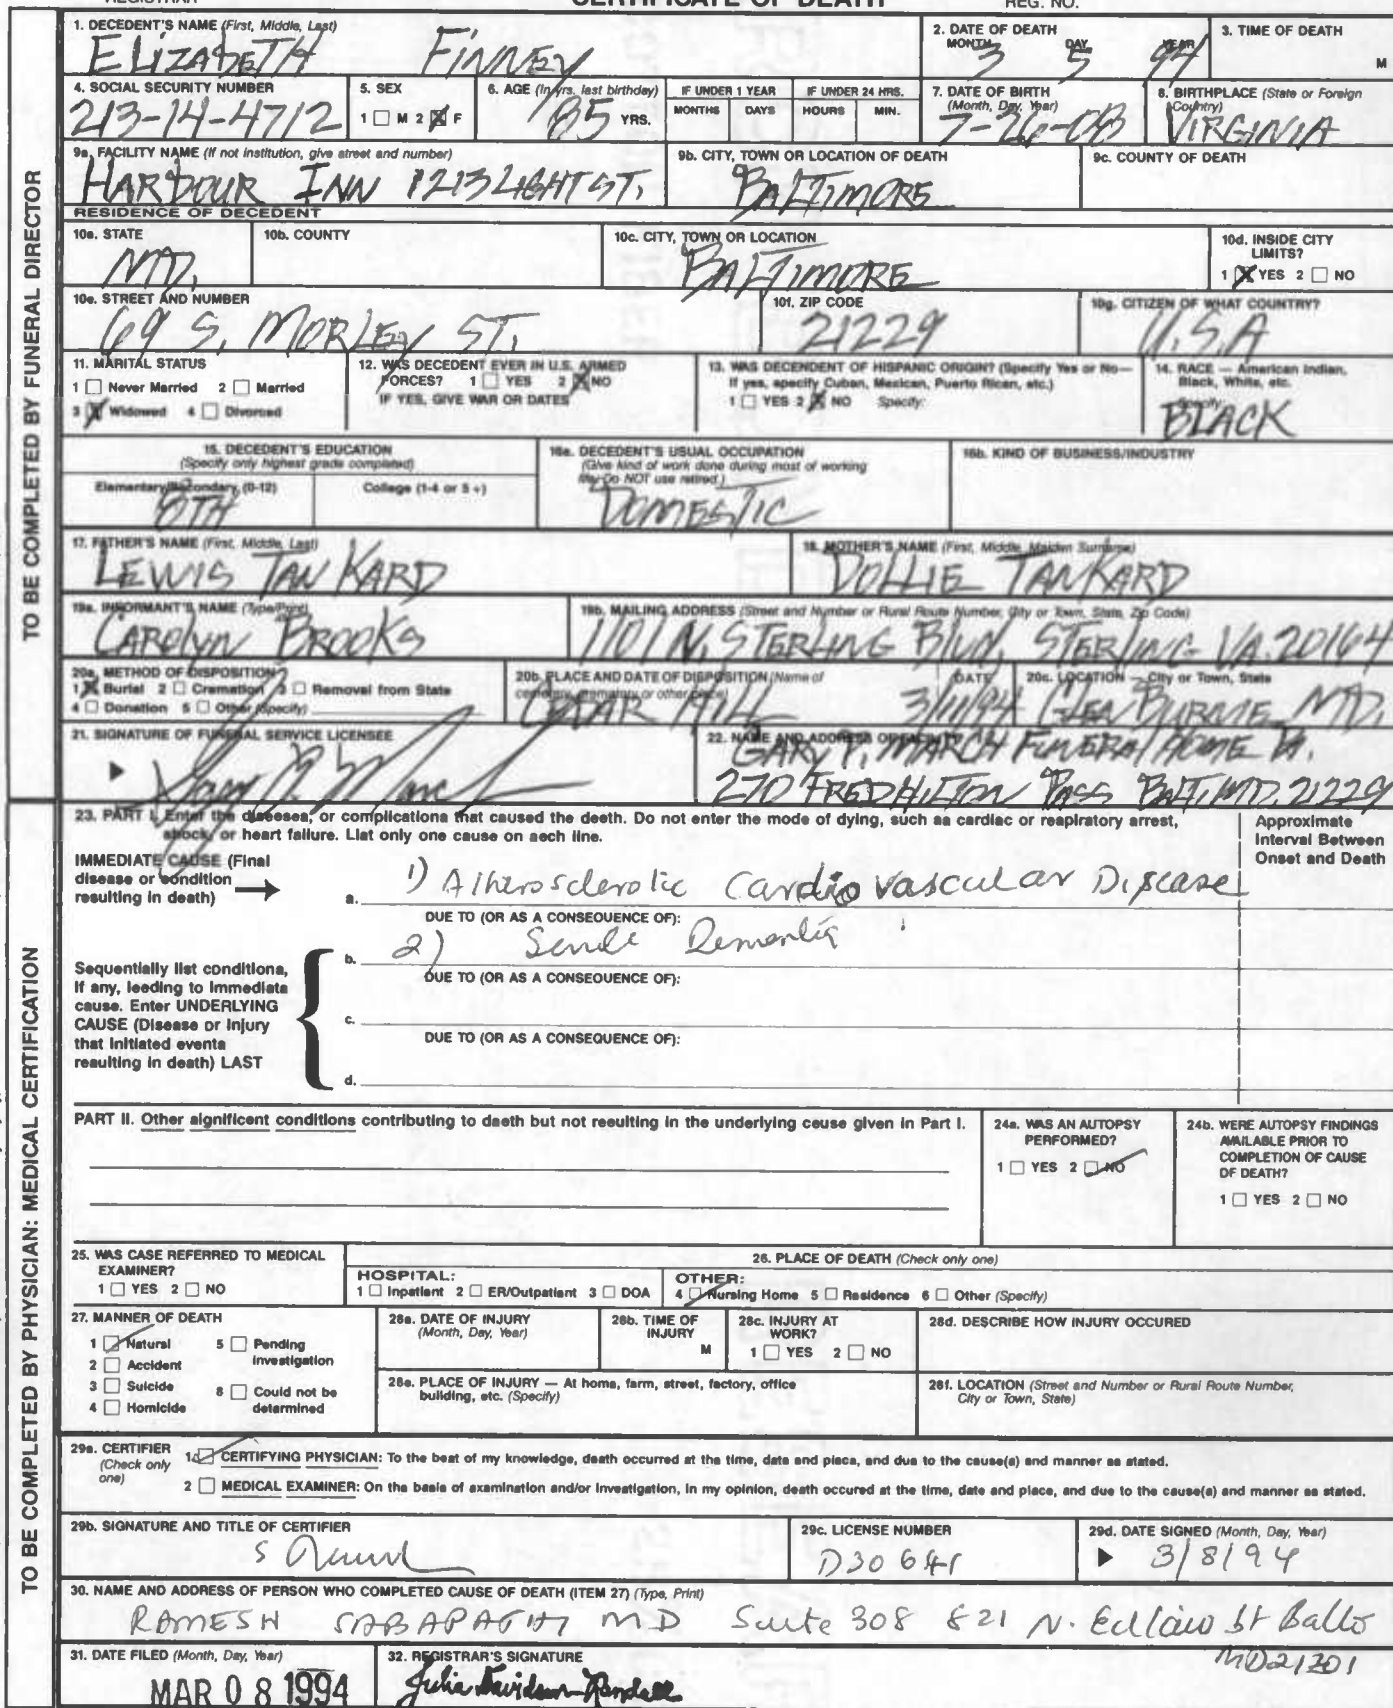 CERTIFICATE OF DEATH
REG. NO.
TO BE COMPLETED BY FUNERAL DIRECTOR
1. DECEDENT'S NAME (First, Middle, Last)
ELIZABETH FINNEY
2. DATE OF DEATH
MONTH DAY YEAR
3 5 94
3. TIME OF DEATH
M
4. SOCIAL SECURITY NUMBER
213-14-4712
5. SEX
1 M 2 X F
6. AGE (In yrs. last birthday)
85 YRS.
IF UNDER 1 YEAR
MONTHS DAYS
IF UNDER 24 HRS.
HOURS MIN.
7. DATE OF BIRTH
(Month, Day, Year)
7-26-08
8. BIRTHPLACE (State or Foreign Country)
VIRGINIA
9a. FACILITY NAME (If not institution, give street and number)
HARBOUR INN 1213 LIGHT ST.
9b. CITY, TOWN OR LOCATION OF DEATH
BALTIMORE
9c. COUNTY OF DEATH
RESIDENCE OF DECEDENT
10a. STATE
MD.
10b. COUNTY
10c. CITY, TOWN OR LOCATION
BALTIMORE
10d. INSIDE CITY LIMITS?
1 X YES 2 NO
10e. STREET AND NUMBER
69 S. MORLEY ST.
10f. ZIP CODE
21229
10g. CITIZEN OF WHAT COUNTRY?
U.S.A
11. MARITAL STATUS
1 Never Married 2 Married
3 X Widowed 4 Divorced
12. WAS DECEDENT EVER IN U.S. ARMED
FORCES? 1 YES 2 X NO
IF YES, GIVE WAR OR DATES
13. WAS DECENDENT OF HISPANIC ORIGIN? (Specify Yes or No—
If yes, specify Cuban, Mexican, Puerto Rican, etc.)
1 YES 2 X NO Specify:
14. RACE — American Indian,
Black, White, etc.
Specify:
BLACK
15. DECEDENT'S EDUCATION
(Specify only highest grade completed)
Elementary/Secondary (0-12) College (1-4 or 5+)
8TH
16a. DECEDENT'S USUAL OCCUPATION
(Give kind of work done during most of working
life. Do NOT use retired.)
DOMESTIC
16b. KIND OF BUSINESS/INDUSTRY
17. FATHER'S NAME (First, Middle, Last)
LEWIS TANKARD
18. MOTHER'S NAME (First, Middle, Maiden Surname)
DOLLIE TANKARD
19a. INFORMANT'S NAME (Type/Print)
CAROLYN BROOKS
19b. MAILING ADDRESS (Street and Number or Rural Route Number, City or Town, State, Zip Code)
1101 N. STERLING BLVD, STERLING VA. 20164
20a. METHOD OF DISPOSITION
1 X Burial 2 Cremation 3 Removal from State
4 Donation 5 Other (Specify)
20b. PLACE AND DATE OF DISPOSITION (Name of
cemetery, crematory or other place) DATE
CEDAR HILL 3/11/94
20c. LOCATION — City or Town, State
GLEN BURNIE MD.
21. SIGNATURE OF FUNERAL SERVICE LICENSEE
22. NAME AND ADDRESS OF FACILITY
GARY P. MARCH FUNERAL HOME P.A.
270 FREDHILTON PASS BALT. MD. 21229
TO BE COMPLETED BY PHYSICIAN: MEDICAL CERTIFICATION
23. PART I. Enter the diseases, or complications that caused the death. Do not enter the mode of dying, such as cardiac or respiratory arrest,
shock, or heart failure. List only one cause on each line.
Approximate
Interval Between
Onset and Death
IMMEDIATE CAUSE (Final
disease or condition
resulting in death)
a. 1) Atherosclerotic Cardiovascular Disease
DUE TO (OR AS A CONSEQUENCE OF):
b. 2) Senile Dementia
DUE TO (OR AS A CONSEQUENCE OF):
Sequentially list conditions,
if any, leading to immediate
cause. Enter UNDERLYING
CAUSE (Disease or injury
that initiated events
resulting in death) LAST
c.
DUE TO (OR AS A CONSEQUENCE OF):
d.
PART II. Other significant conditions contributing to death but not resulting in the underlying cause given in Part I.
24a. WAS AN AUTOPSY
PERFORMED?
1 YES 2 NO
24b. WERE AUTOPSY FINDINGS
AVAILABLE PRIOR TO
COMPLETION OF CAUSE
OF DEATH?
1 YES 2 NO
25. WAS CASE REFERRED TO MEDICAL
EXAMINER?
1 YES 2 NO
26. PLACE OF DEATH (Check only one)
HOSPITAL:
1 Inpatient 2 ER/Outpatient 3 DOA
OTHER:
4 Nursing Home 5 Residence 6 Other (Specify)
27. MANNER OF DEATH
1 Natural 5 Pending
investigation
2 Accident
3 Suicide 8 Could not be
determined
4 Homicide
28a. DATE OF INJURY
(Month, Day, Year)
28b. TIME OF
INJURY
M
28c. INJURY AT
WORK?
1 YES 2 NO
28d. DESCRIBE HOW INJURY OCCURED
28e. PLACE OF INJURY — At home, farm, street, factory, office
building, etc. (Specify)
28f. LOCATION (Street and Number or Rural Route Number,
City or Town, State)
29a. CERTIFIER
(Check only
one)
1 CERTIFYING PHYSICIAN: To the best of my knowledge, death occurred at the time, date and place, and due to the cause(s) and manner as stated.
2 MEDICAL EXAMINER: On the basis of examination and/or investigation, in my opinion, death occured at the time, date and place, and due to the cause(s) and manner as stated.
29b. SIGNATURE AND TITLE OF CERTIFIER
29c. LICENSE NUMBER
29d. DATE SIGNED (Month, Day, Year)
3/8/94
30. NAME AND ADDRESS OF PERSON WHO COMPLETED CAUSE OF DEATH (ITEM 27) (Type, Print)
RAMESH SABAPATHI MD Suite 308 821 N. Eutaw St Balto
MD 21201
31. DATE FILED (Month, Day, Year)
MAR 08 1994
32. REGISTRAR'S SIGNATURE
Julia Davidson-Randall